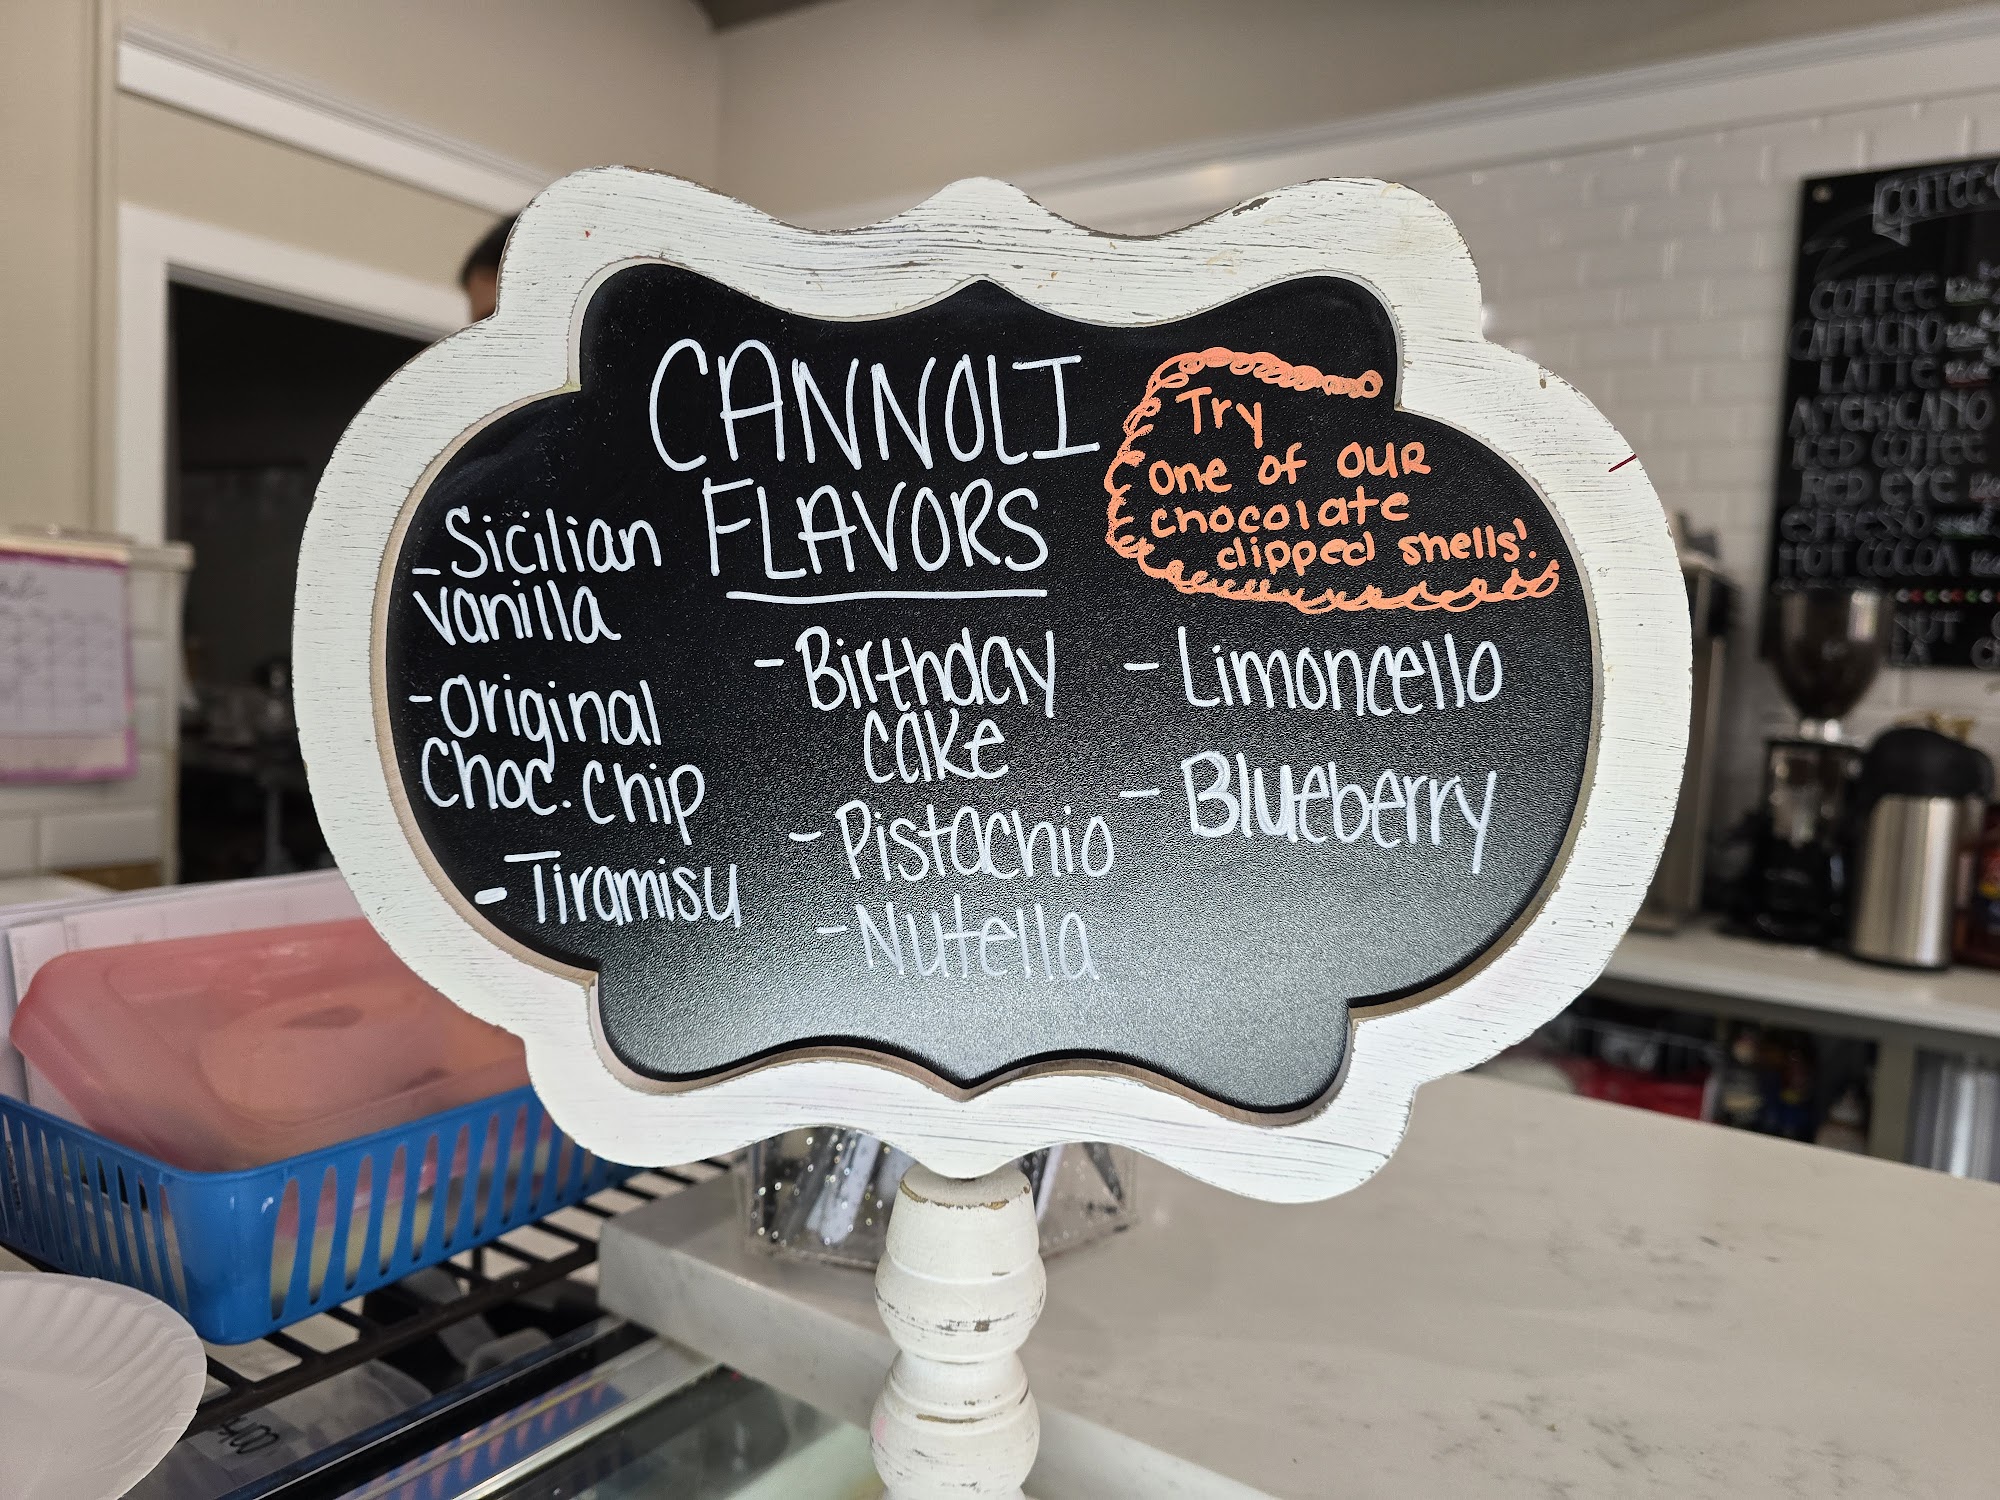 CANNOLI
FLAVORS
Try
one of our
chocolate
dipped shells!
- Sicilian
vanilla
- Original
Choc. chip
- Tiramisu
- Birthday
cake
- Pistachio
- Nutella
- Limoncello
- Blueberry
COFFEE
COFFEE
CAPPUCINO
LATTE
AMERICANO
ICED COFFEE
RED EYE
ESPRESSO
HOT COCOA